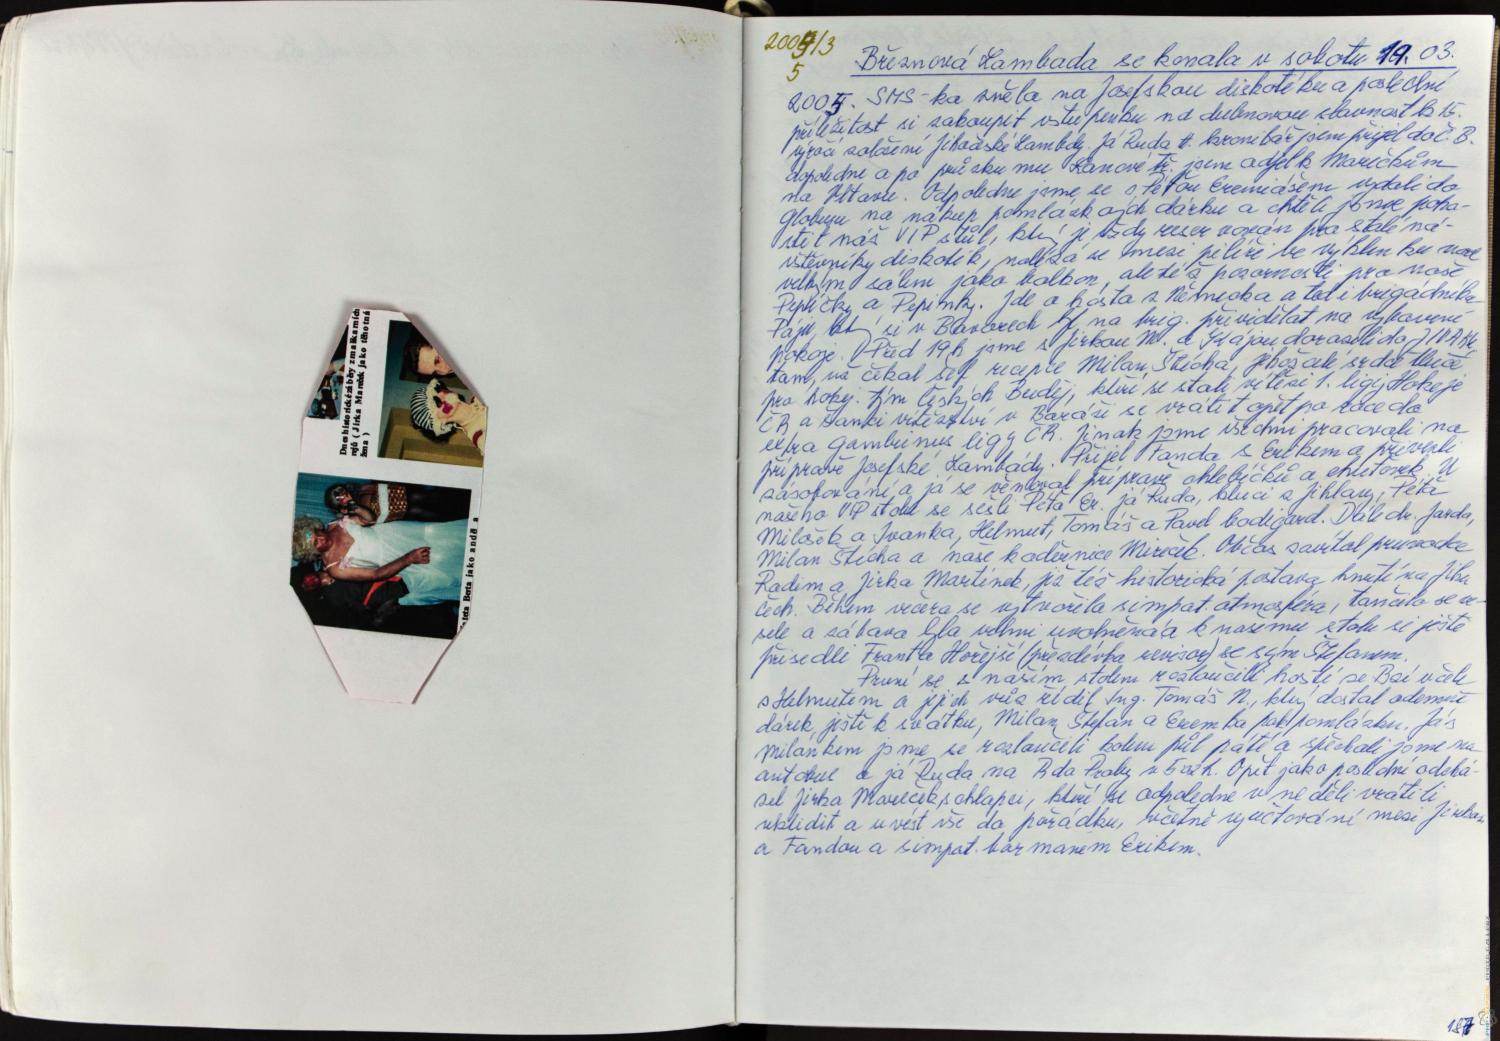 Dnes historické záběry z maškarních
rejů ( Jirka Mareček jako těhotná
žena )
teta Berta jako anděl a
2005/3
5
Březnová Lambada se konala v sobotu 19. 03.
2005. SMS-ka zněla na Josefskou diskotéku a poslední
příležitost si zakoupit vstupenku na dubnovou slavnost k 15.
výročí založení Jihočeské Lambády. Já Ruda t. kronikář jsem přijel do Č. B.
dopoledne a po průzkumu Lanové tř. jsem odjel k Marečkům
na Vltavu. Odpoledne jsme se s Péťou Eremiášem vydali do
Globusu na nákup pomlázkových dárků a chtěli jsme poho-
stit náš VIP stůl, který je vždy reservován pro stálé ná-
vštěvníky diskoték, nalézá se mezi pilíři ve výklenku nad
velkým sálem jako balkon, ale též pozornosti pro naše
Pepíčky a Pepinky. Jde o hosta z Německa a též i brigádníka
si v Bavorech na brig. přivydělat na vybavení
pokoje. Před 19h jsme s Jirkou M. a dorazili do
tam, už čekal šéf recepce Milan Štícha, jehož celé srdce tluče
pro hokej. tým Českých Buděj, kteří se stali vítězi 1. ligy Hokeje
ČR a šanci vítězství v Baráži se vrátit opět po roce do
extra Gambrinus ligy ČR. Jinak jsme všichni pracovali na
přípravě Josefské Lambády. Přijel Fanda s Erikem a přivezli
zásobování a já se věnoval přípravě chlebíčků a chuťovek. U
našeho VIP stolu se sešli Péťa Er. já Ruda, kluci z Jihlavy, Péťa
Milošek a Ivanka, Helmut, Tomáš a Pavel bodigard. Dále dr. Jarda,
Milan Štícha a naše kadeřnice Mireček. Občas zavítal průvodce
Radim a Jirka Martínek, již též historická postava hnutí na Jihu
Čech. Během večera se vytvořila simpat. atmosféra, tančilo se ve-
sele a zábava byla velmi uvolněná a k našemu stolu si ještě
přisedli Franta Hořejší (přezdívka revizor) se svým Štefanem.
První se s naším stolem rozloučili hosté se Bsí včele
s Helmutem a jejich vůz řídil Ing. Tomáš N., který dostal odemně
dárek ještě k svátku, Milan, Štefan a Eremka pak pomlázku. Já s
Milánkem jsme se rozloučili kolem půl páté a spěchali jsme na
autobus a já Ruda na R do Prahy v 5 oo h. Opět jako poslední odchá-
zel Jirka Mareček s chlapci, kteří se odpoledne v neděli vrátili
uklidit a uvést vše do pořádku, včetně vyúčtování mezi Jirkou
a Fandou a simpat. barmanem Erikem.
187